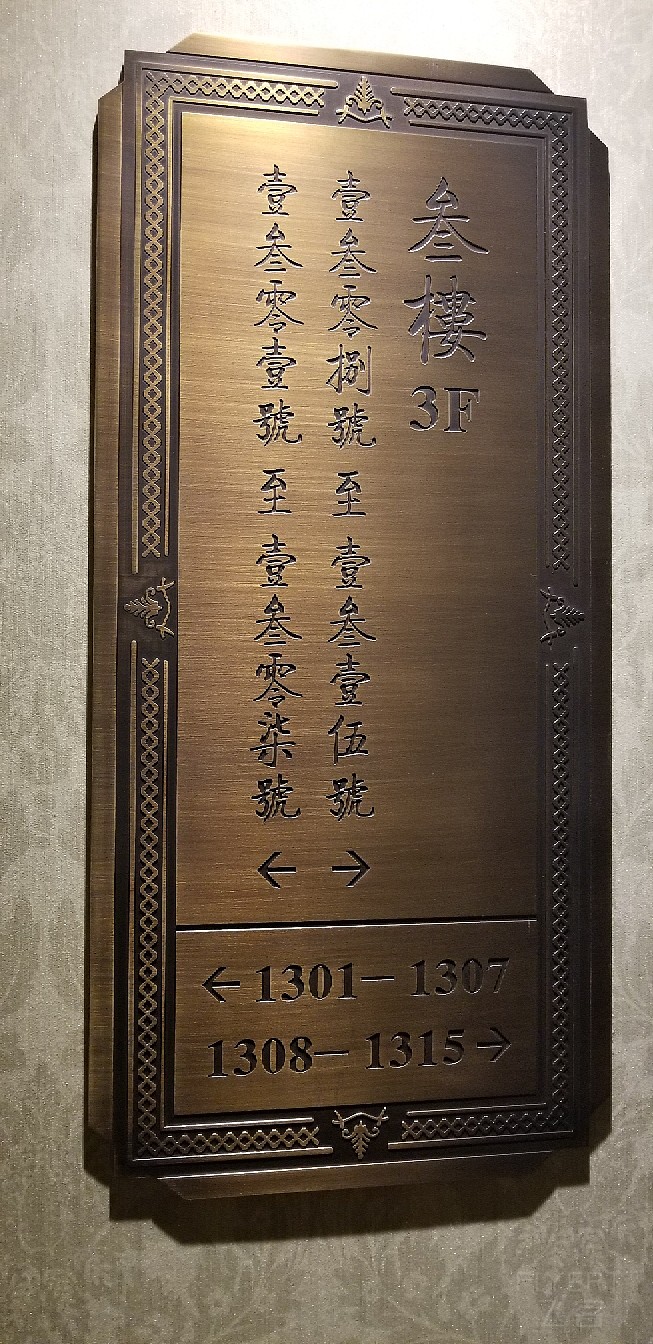 叁樓
3F
壹叁零捌號 至 壹叁壹伍號 →
壹叁零壹號 至 壹叁零柒號 ←
← 1301－1307
1308－1315 →